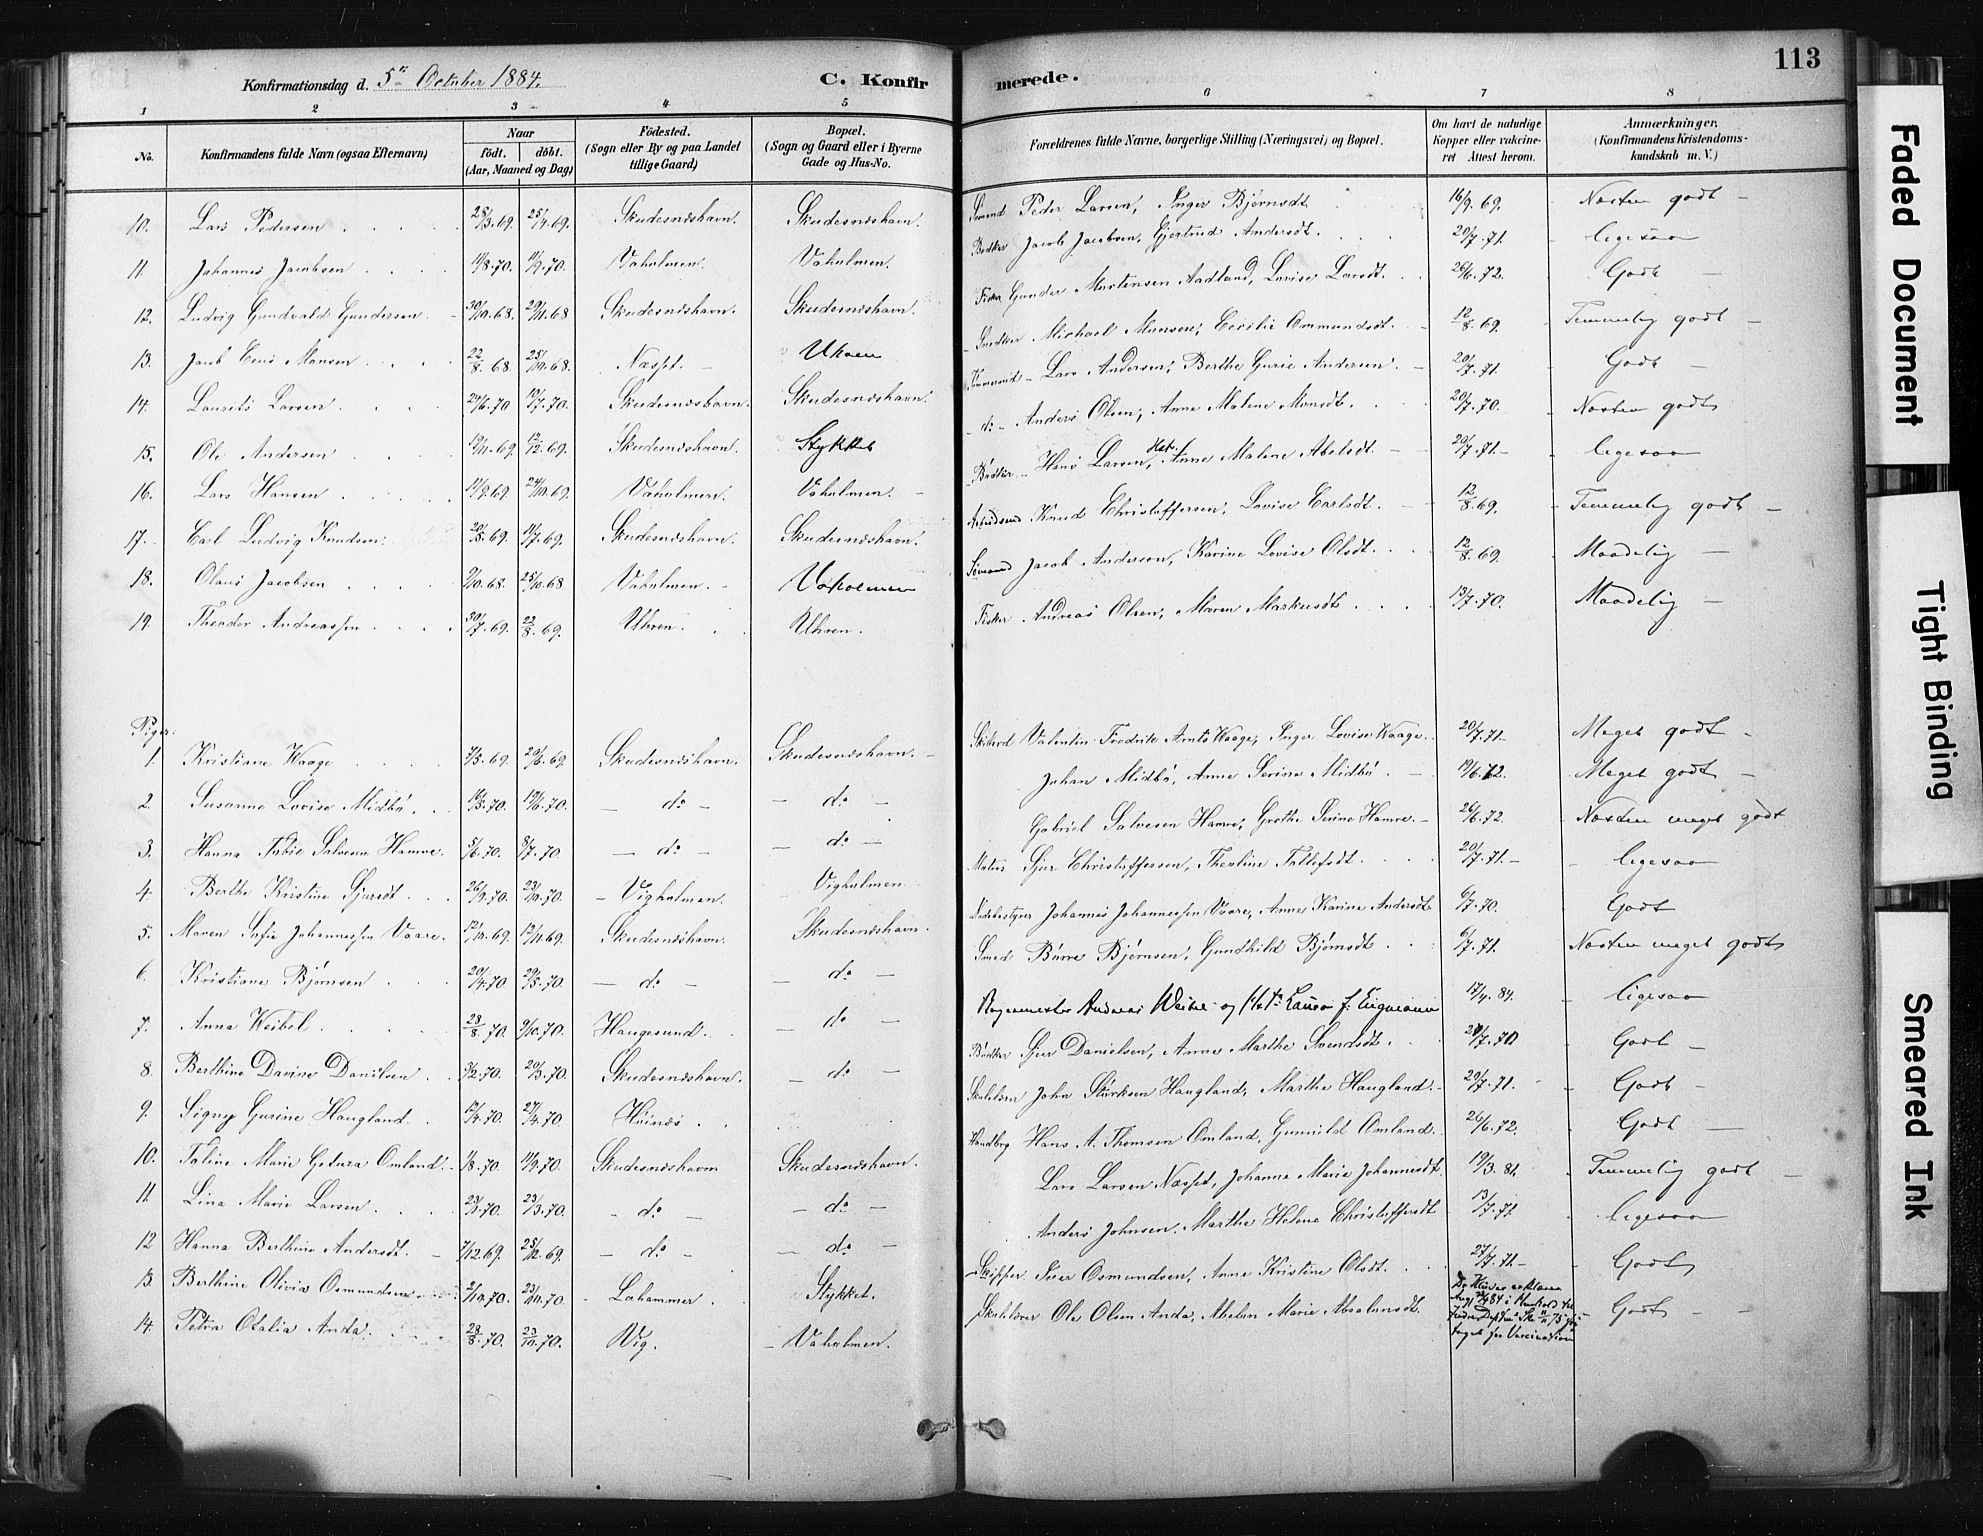 113
Konfirmationsdag d. 5te October 1884.
C. Konfirmerede.
1 2 3 4 5 6 7 8
No. Konfirmandens fulde Navn (ogsaa Efternavn) Naar födt. döbt. (Aar, Maaned og Dag) Födested. (Sogn eller By og paa Landet tillige Gaard) Bopæl. (Sogn og Gaard eller i Byerne Gade og Hus-No. Forældrenes fulde Navne, borgerlige Stilling (Næringsvei) og Bopæl. Om havt de naturlige Kopper eller vakcineret Attest herom. Anmærkninger. (Konfirmandens Kristendomskundskab m. V.)
10. Lars Pedersen 28/3.69. 25/4.69. Skudesnæshavn. Skudesnæshavn. Peder Larsen, Inger Bjørnsdt 16/9.69. Næsten godt
11. Johannes Jacobsen 11/8.70. 11/9.70. Vaholmen. Vaholmen. Bødker Jacob Jacobsen, Gjertrud Andersdt. 20/7.71. ligesaa
12. Ludvig Gundvald Gundersen 30/10.68. 29/11.68 Skudesnæshavn. Skudesnæshavn. Fisker Gunder Mortensen Aadland, Lovise Larsdt. 26/6.72. Godt
13. Jacob Monsen 22/8.68 25/10.68. Næsset. Snedker Michael Monsen, Cecilie Ommundsdt. 12/8.69. Temmelig godt
14. Laurits Larsen 24/6.70 17/7.70. Skudesnæshavn. Skudesnæshavn. Lars Andersen, Berthe Gurie Andersen 20/7.71. Godt
15. Ole Andersen 19/11.69. 12/12.69. Skudesnæshavn. Stykket do Anders Olsen, Anne Malene Monsdt. 20/7.70. Næsten godt
16. Lars Hansen 11/9.69. 24/10.69. Vaholmen. Vaholmen. Bødker Hans Larsen, Anne Malene Abelsdt. 20/7.71. ligesaa
17. Carl Ludvig Knudsen 20/5.69. 11/7.69. Skudesnæshavn. Skudesnæshavn. Knud Christoffersen, Lovise Carlsdt. 12/8.69. Temmelig godt
18. Olaus Jacobsen 9/10.68. 25/10.68 Vaholmen. Vaholmen Sømand Jacob Andersen, Karine Lovise Olsdt. 12/8.69 Maadelig
19. Theodor Andreassen 30/7.69. 22/8.69. Uhren. Uhren. Fisker Andreas Olsen, Maren Markusdt 13/7.70. Maadelig
Piger.
1. Kristiane Waage 7/5.69. 20/6.69. Skudesnæshavn. Skudesnæshavn. Valentin Fredrik Arnts Waage, Inger Lovise Waage. 20/7.71. Meget godt
2. Susanne Lovise Midbö. 16/5.70. 19/6.70. do do Johan Midbö, Anne Serine Midbö 19/6.72. Meget godt
3. Hanna Salvesen Hamre. 5/6.70. 8/7.70. do do Gabriel Salvesen Hamre, Grethe Serine Hamre. 26/6.72. Næsten meget godt
4. Berthe Kristine Sjursdt. 26/9.70. 23/10.70. Vigholmen. Vigholmen Matros Sjur Christoffersen, Theoline Tollefsdt. 20/7.71. ligesaa
5. Maren Sofie Johannessen Vaare. 12/10.69. 12/11.69. Skudesnæshavn. Skudesnæshavn. Johannes Johannessen Vaare, Anne Karine Andersdt 6/7.70. Godt
6. Kristiane Bjørnsen 20/4.70 29/5.70. do do Smed Börre Bjørnsen, Gundhild Bjørnsdt 6/7.71. Næsten meget godt
7. Anna Weibel 28/8.70 9/10.70. Haugesund. do Andreas Weibel og 17/4.84. ligesaa
8. Berthine Davine Danilsen 3/2.70. 20/3.70. Skudesnæshavn. do Bødker Sjur Danielsen, Anne Marthe Svendsdt. Godt
9. Signy Gurine Haugland. 12/4.70. 27/4.70. Høinæs Skolelærer John Störksen Haugland, Marthe Haugland. 20/7.71. Godt
10. Taline Marie Omland. 1/8.70. 11/9.70. Skudesnæshavn Skudesnæshavn. Hans A. Thomsen Omland, Gunvild Omland. 26/6.72. Godt
11. Lina Marie Larsen 23/1.70. 23/3.70. do do Lars Larsen Næsset, Johanne Marie Johannesdt 19/3.81. Temmelig godt
12 Hanna Berthine Andersdt. 7/12.69. 25/12.69. do do Anders Johnsen, Marthe Helene Christoffersdt 13/7.71. ligesaa
13. Berthine Olivia Osmundsen 2/10.70. 23/10.70. Lahammer. Stykket. Skipper Iver Osmundsen, Anne Kristine Olsdt. 27/7.71. Godt
14. Petra Otalia Anda. 28/8.70. 23/10.70. Vig. Vaholmen. Skolelærer Ole Olsen Anda, Abelin Marie Absalonsdt Vaccination Godt
Faded Document
Tight Binding
Smeared Ink